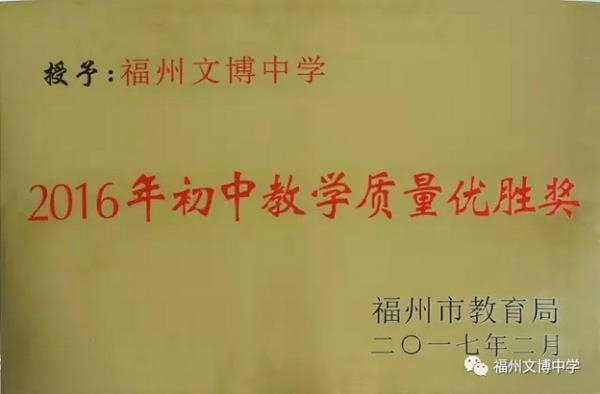 授予:福州文博中学
2016年初中教学质量优胜奖
福州市教育局
二〇一七年二月
福州文博中学